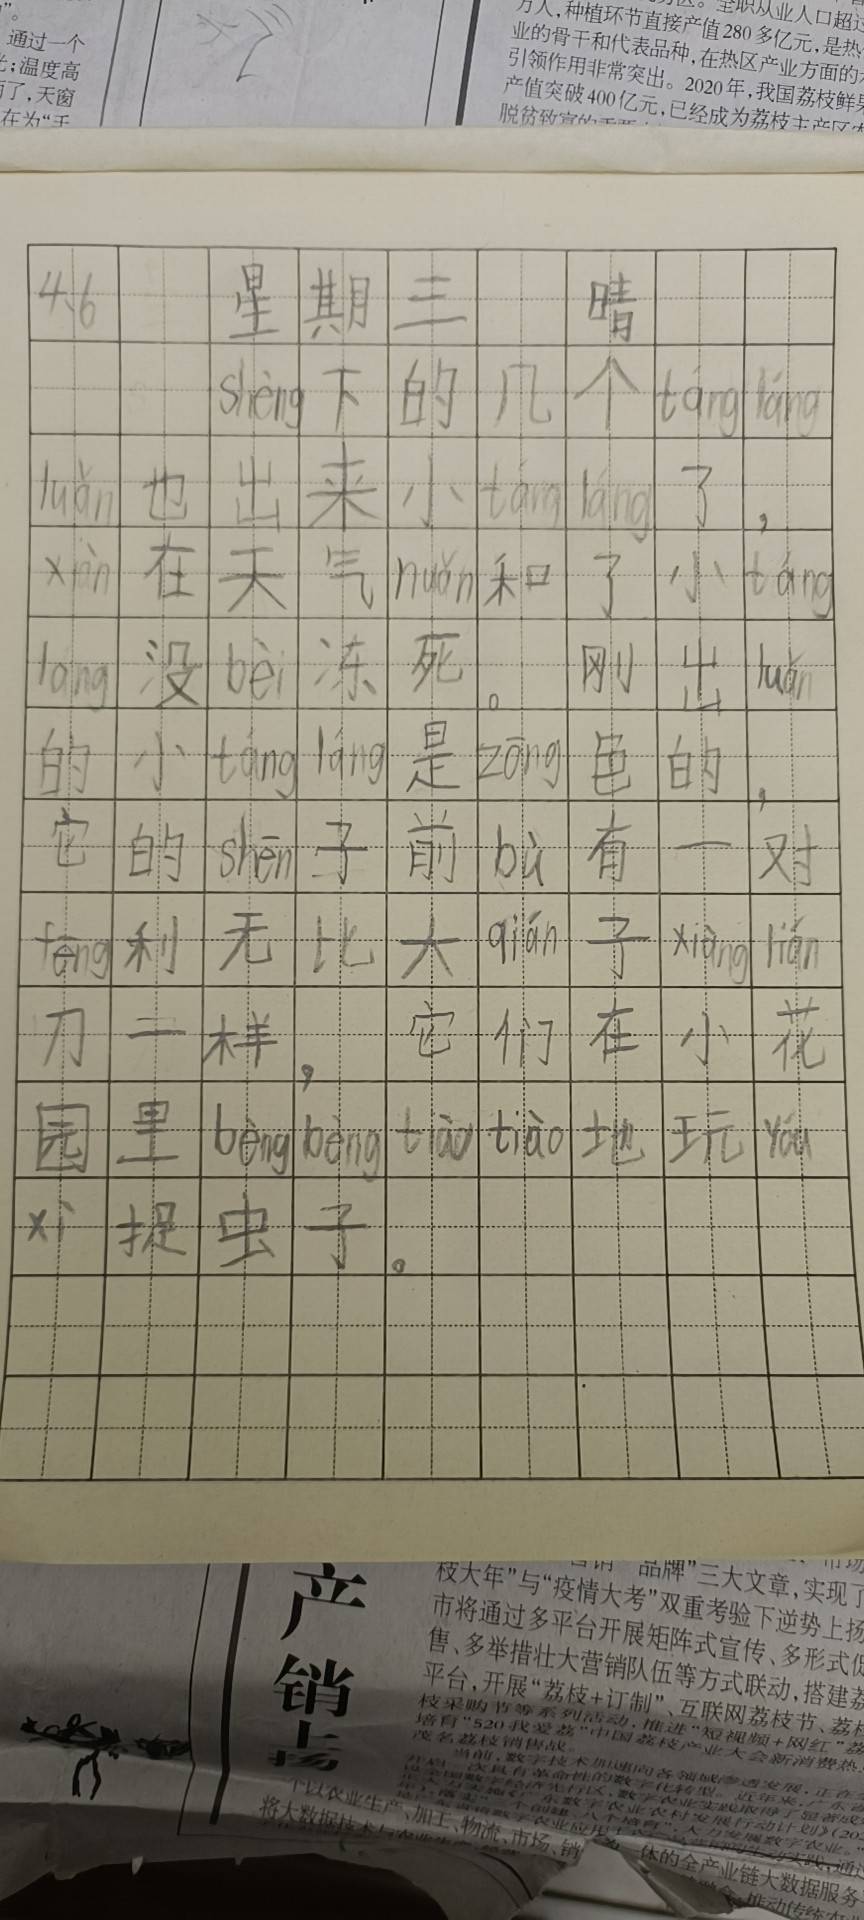 通过一个
温度高
了，天窗
在为“手
万人，种植环节直接产值280多亿元，是热
业的骨干和代表品种，在热区产业方面的
引领作用非常突出。2020年，我国荔枝鲜果
产值突破400亿元，已经成为荔枝主产区
4、6 星期三 晴
shèng下的几个táng láng
luǎn也出来小táng láng了，
xiàn在天气nuǎn和了小táng
láng没bèi冻死。刚出luǎn
的小táng láng是zōng色的，
它的shēn子前bù有一对
fēng利无比大qián子xiàng lián
刀一样，它们在小花
园里bèng bèng tiào tiào地玩yóu
xì捉虫子。
产销
枝大年”与“疫情大考”双重考验下逆势上扬
市将通过多平台开展矩阵式宣传、多形式促
售、多举措壮大营销队伍等方式联动，搭建荔
平台，开展“荔枝+订制”、互联网荔枝节、荔枝
枝采购节等系列活动，推进“短视频+网红”
培育“520我爱荔”中国荔枝产业大会新消费热
茂名荔枝销售战。
将大数据技术
加工、物流、市场、销
体的全产业链大数据服务